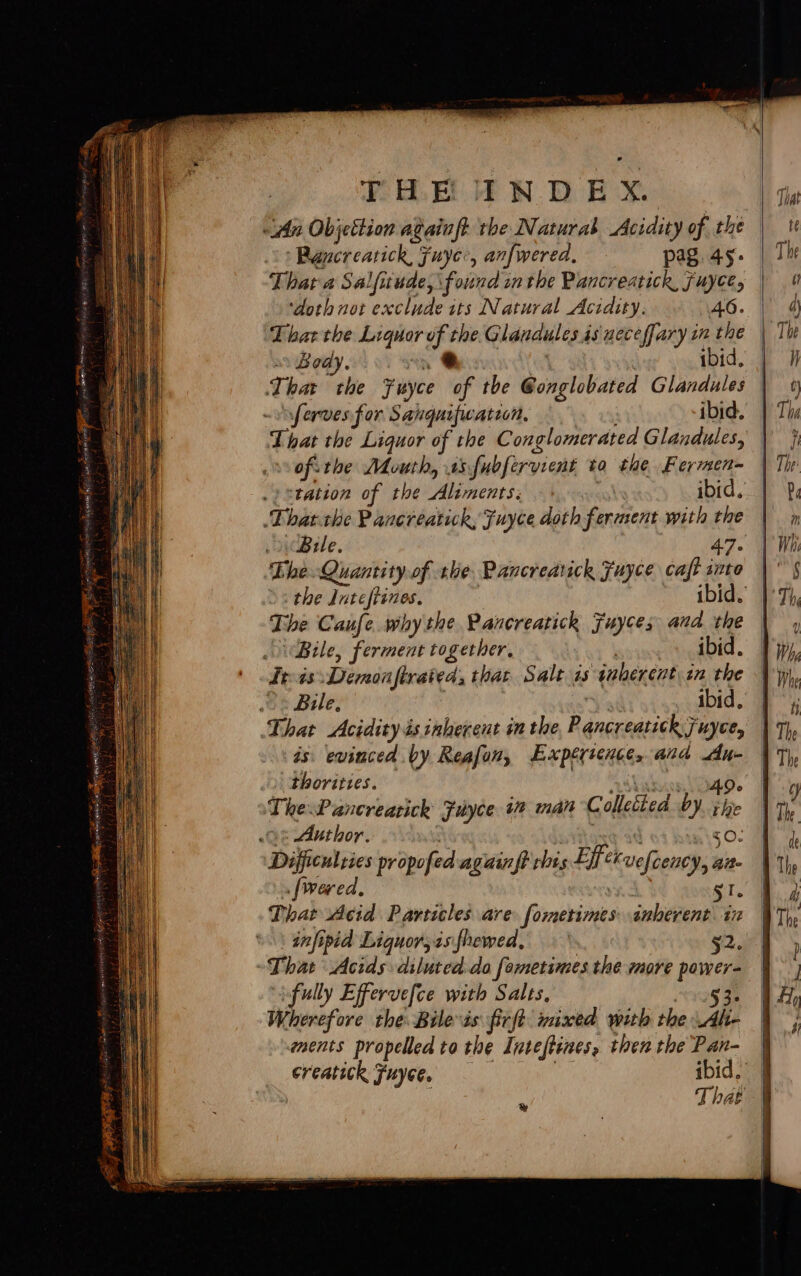 THE INDEX.
An Objection againſt the Natural Acidity of the
Pancreatick Juyce, anſwered. pag. 45.
That a Salſitude, found in the Pancreatick Juyce,
doth not exclude its Natural Acidity. 46.
That the Liquor of the Glandules is neceſſary in the
Body. ibid.
That the Juyce of the Conglobated Glandules
ſerves for Sanguification. ibid.
That the Liquor of the Conglomerated Glandules,
of the Mouth, is ſubſervient to the Fermen-
tation of the Aliments. ibid.
That the Pancreatick Juyce doth ferment with the
Bile. 47.
The Quantity of the Pancreatick Juyce caſt into
the Inteſtines. ibid.
The Cauſe why the Pancreatick Juyces and the
Bile, ferment together. ibid.
It is Demonſtrated, that Salt is inherent in the
Bile. ibid.
That Acidity is inherent in the Pancreatick Juyce,
is evinced by Reaſon, Experience, and Au-
thorities. 49.
The Pancreatick Juyce in man Collected by the
Author. 50.
Difficulties propoſed againſt this Efferveſcency, an-
ſwered. 51.
That Acid Particles are ſometimes inherent in
inſipid Liquor, is ſhewed. 52.
That Acids diluted do ſometimes the more power-
fully Efferveſce with Salts. 53.
Wherefore the Bile is firſt mixed with the Ali-
ments propelled to the Inteſtines, then the Pan-
creatick Juyce. ibid.
That